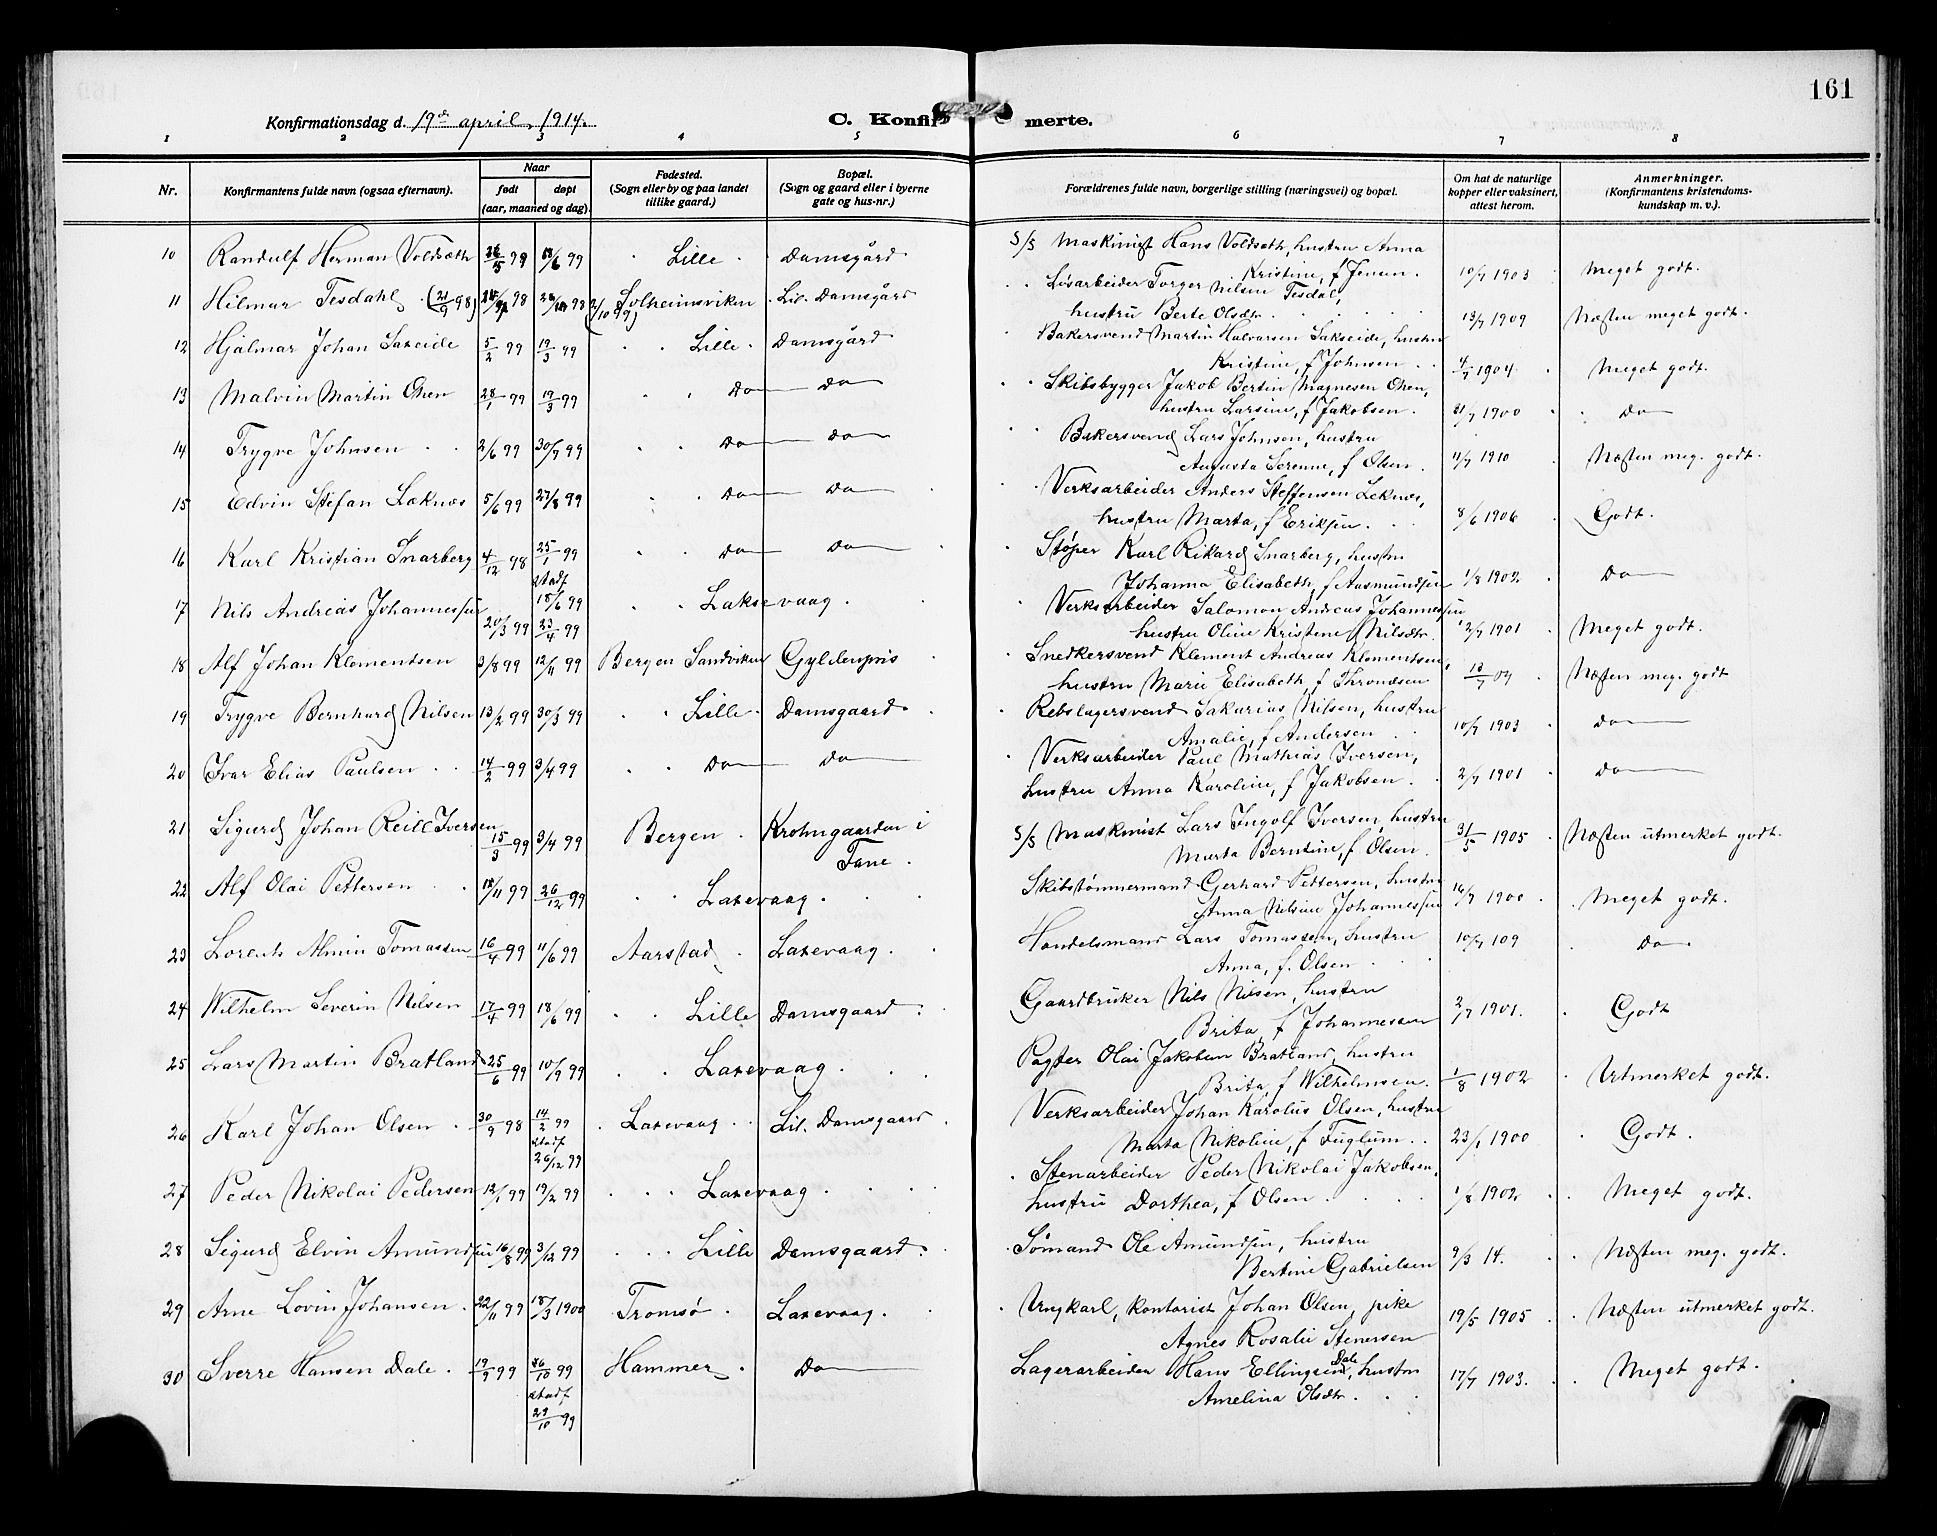 161
Konfirmationsdag d. 19de april 1914.
C. Konfir merte.
1 2 3 4 5 6 7 8
Nr.
Konfirmantens fulde navn (ogsaa efternavn).
Naar
født døpt
(aar, maaned og dag).
Fødested.
(Sogn eller by og paa landet
tillike gaard.)
Bopæl.
(Sogn og gaard eller i byerne
gate og hus-nr.)
Forældrenes fulde navn, borgerlige stilling (næringsvei) og bopæl.
Om hat de naturlige
kopper eller vaksinert,
attest herom.
Anmerkninger.
(Konfirmantens kristendoms-
kundskap m. v.).
10 Randulf Herman Voldsæth 99 /6 99 Lille Damsgård S/S Maskinist Hans Voldseth, hustru Anna
Kristine, f Jensen. 10/7 1903 Meget godt.
11 Hilmar Tesdahl (21/9 98) 98 98 Solheimsviken Lil. Damsgård Løsarbeider Torger Nilsen Tesdal,
hustru Berte Olsdtr. 13/7 1909 Næsten meget godt.
12 Hjalmar Johan Saxeide 5/2 99 19/3 99 Lille Damsgård Bakersvend Martin Halvorsen Sakseide, hustru
Kristine, f Johnsen 4/7 1904 Meget godt.
13 Malvin Martin Ohen 28/1 99 19/3 99 Do Do Skibsbygger Jakob Bertin Magnesen Ohen,
hustru Larsine, f Jakobsen. 31/7 1900 Do
14 Trygve Johnsen 2/6 99 30/7 99 Do Do Bakersvend Lars Johnsen, hustru
Augusta Serenne, f Olsen. 11/7 1910 Næsten meg. godt.
15 Edvin Stefan Læknes 5/6 99 27/8 99 Do Do Verksarbeider Anders Steffensen Leknes,
hustru Marta, f Eriksen. 8/6 1906 Godt.
16 Karl Kristian Snarberg 4/12 98 25/1 99 Do Do Støper Karl Rikard Snarberg, hustru
stadf
18/6 99
Johanna Elisabeth, f Aasmundsen 1/8 1902 Do
17 Nils Andreas Johannessen 20/3 99 23/4 99 Laksevaag Verksarbeider Salomon Andreas Johannessen,
hustru Oline Kristene Nilsdtr. 2/7 1901 Meget godt.
18 Alf Johan Klementsen 3/8 99 12/11 99 Bergen Sandviken Gyldenpris Snedkersvend Klement Andreas Klementsen,
hustru Marie Elisabeth, f Throndsen 13/7 09 Næsten meg. godt
19 Trygve Bernhard Nilsen 13/2 99 30/3 99 Lille Damsgaard Rebslagersvend Sakarias Nilsen, hustru
Amalie, f Andersen 10/7 1903 Do
20 Ivar Elias Paulsen 14/2 99 3/4 99 Do Do Verksarbeider Paul Mathias Iversen,
hustru Anna Karoline, f Jakobsen. 2/7 1901 Do
21 Sigurd Johan Reill Iversen 15/3 99 3/4 99 Bergen Krohngaarden i
Fane. S/S Maskinist Lars Ingolf Iversen, hustru
Marta Berntine, f Olsen. 31/5 1905 Næsten utmerket godt.
22 Alf Olai Pettersen 18/11 99 26/12 99 Laxevaag. Skibstømmermand Gerhard Pettersen, hustru
Anna Nilsine Johannessen 16/7 1900 Meget godt.
23 Lorents Almin Tomassen 16/4 99 11/6 99 Aarstad Laxevaag. Handelsmand Lars Tomassen, hustru
Anna, f. Olsen 10/7 109 Do
24 Wilhelm Severin Nilsen 17/4 99 18/6 99 Lille Damsgaard. Gaardbruker Nils Nilsen, hustru
Brita, f Johannessen 2/7 1901. Godt
25 Lars Martin Bratland 25/6 99 10/9 99 Laxevaag Pagter Olai Jakobsen Bratland, hustru
Brita, f Wilhelmsen. 1/8 1902 Utmerket godt.
26 Karl Johan Olsen 30/9 98 14/2 99 Laxevaag Lil. Damsgaard Verksarbeider Johan Karolus Olsen, hustru
stadf
26/12 99
Marta Nikoline, f Fuglum. 23/1 1900 Godt.
27 Peder Nikolai Pedersen 12/1 99 19/2 99 Laxevaag Stenarbeider Peder Nikolai Jakobsen,
hustru Dorthea, f Olsen 1/8 1902 Meget godt.
28 Sigurd Elvin Amundsen 16/8 99 3/12 99 Lille Damsgaard. Sømand Ole Amundsen, hustru
Bertine Gabrielsen 9/3 14. Næsten meg. godt.
29 Arne Lovin Johansen. 22/11 99 18/3 1900 Tromsø Laxevaag. Ungkarl, kontorist Johan Olsen, pike
Agnes Rosalie Stenersen 19/5 1905 Næsten utmerket godt.
30 Sverre Hansen Dale. 19/9 99 /10 99 Hammer Do Lagerarbeider Hans Ellingsen Dale, hustru
stadf
29/10 99
Amelina Olsdtr. 17/7 1903. Meget godt.